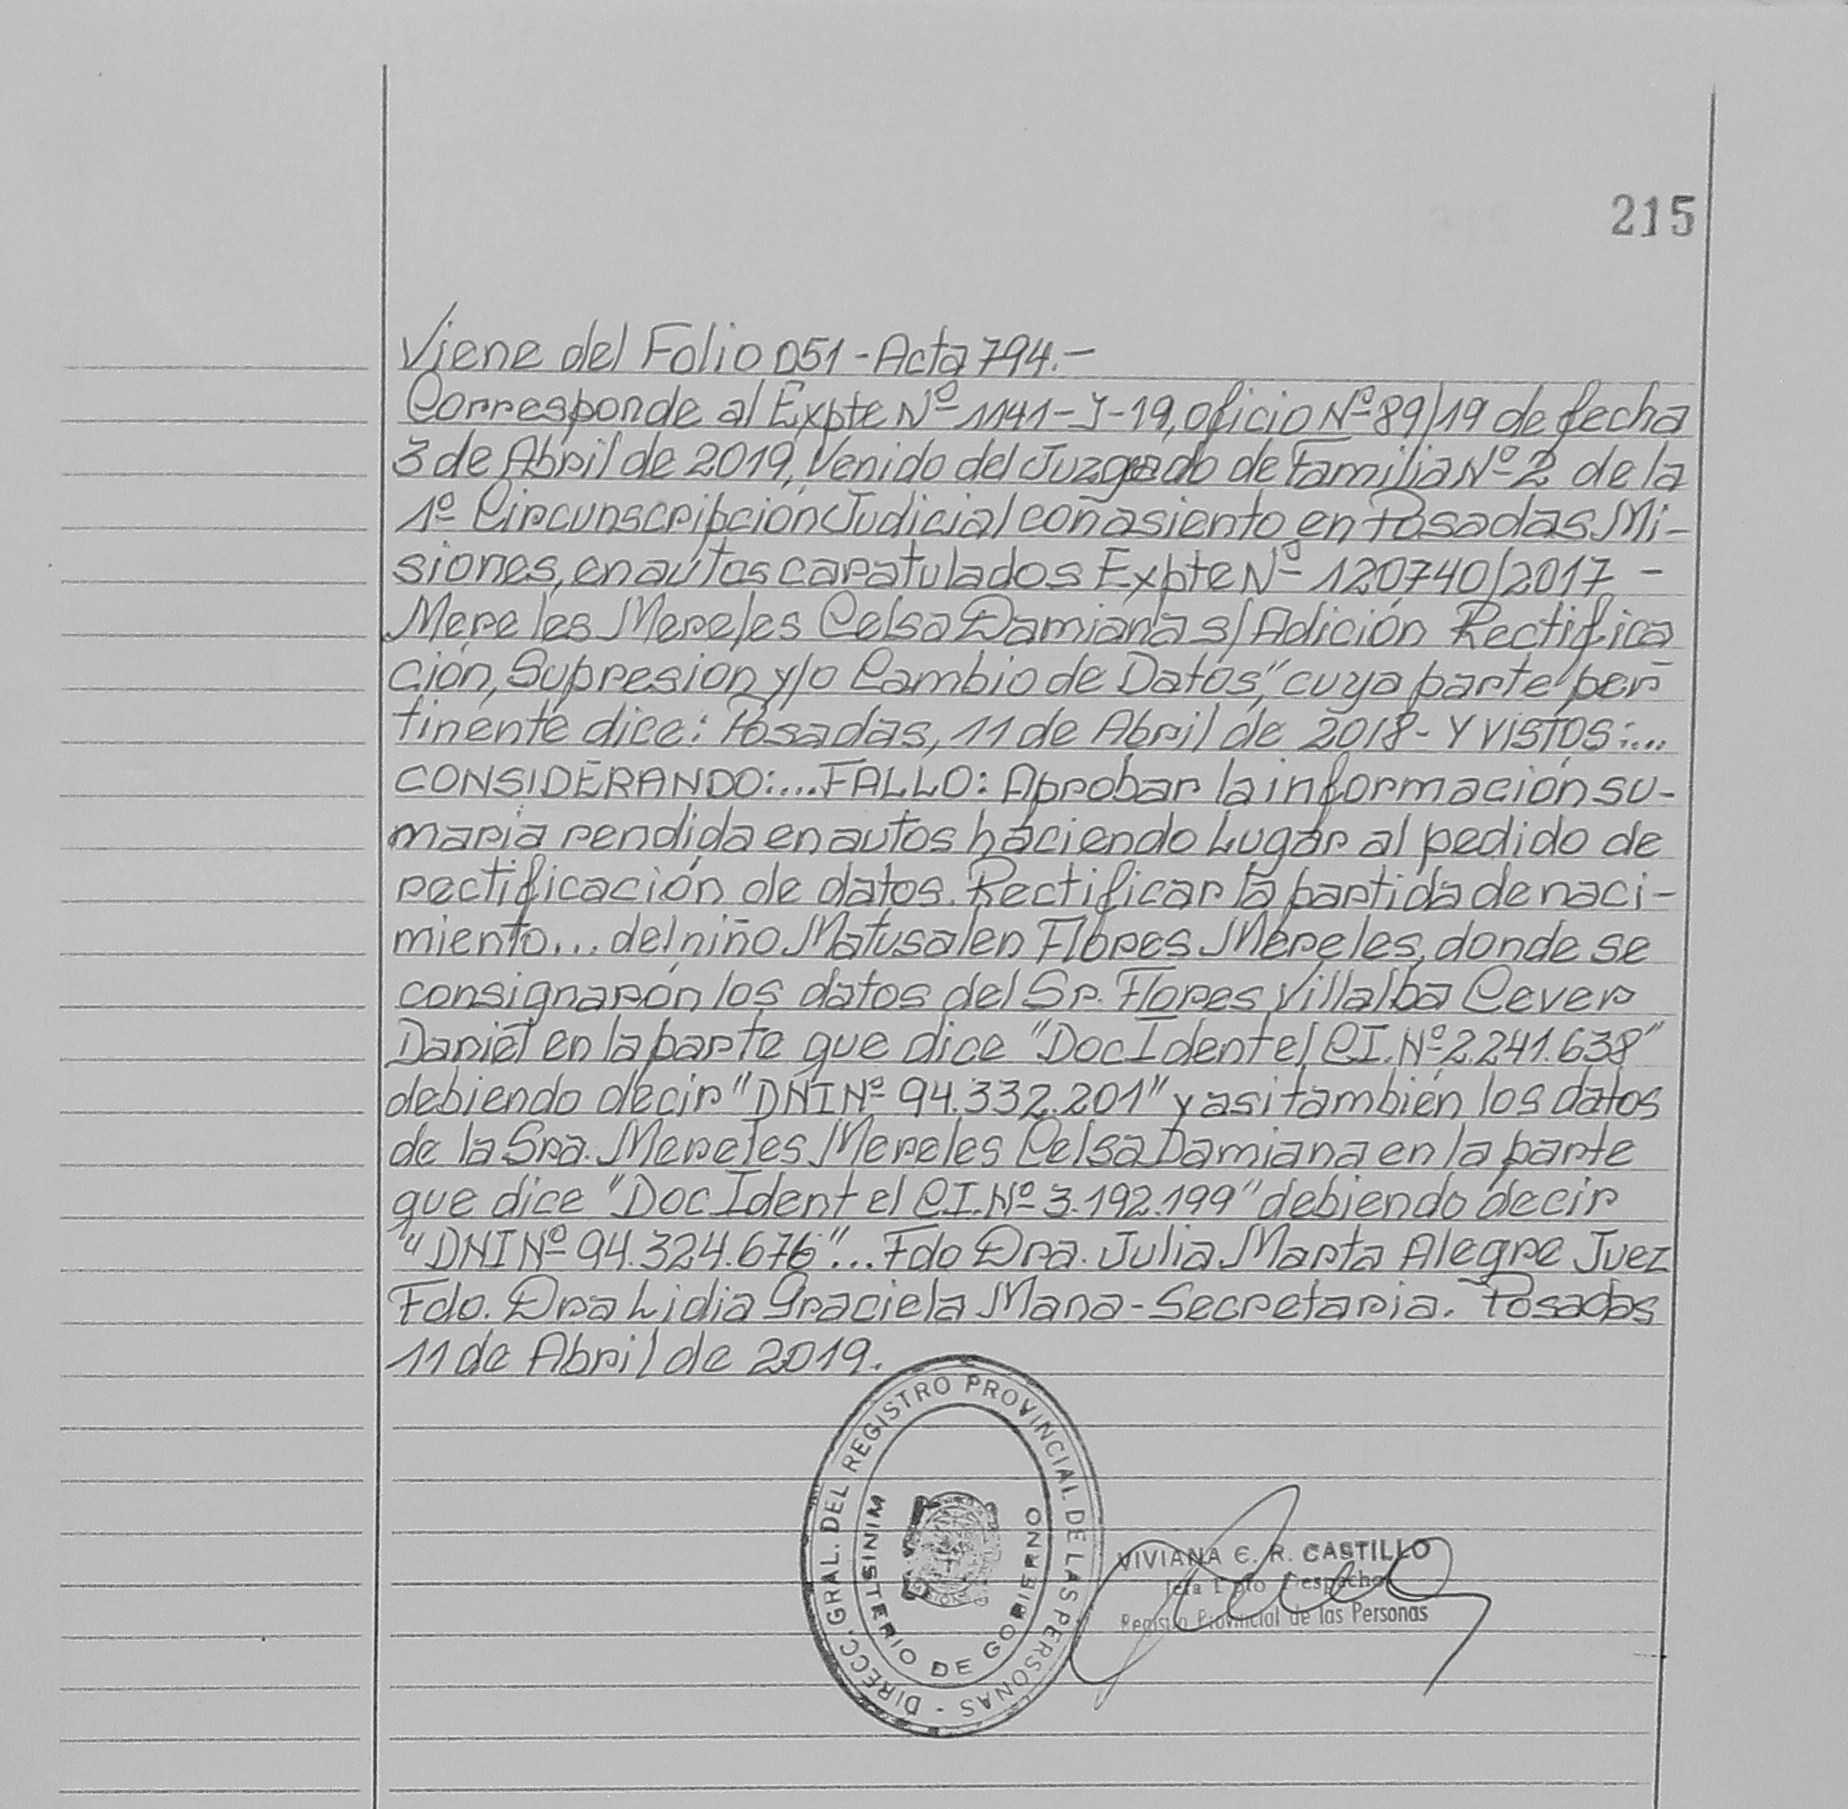 215
Viene del Folio 051 - Acta 794.-
Corresponde al Expte Nº 1141-J-19, oficio Nº 89/19 de fecha
3 de Abril de 2019, Venido del Juzgado de Familia Nº 2 de la
1º Circunscripción Judicial con asiento en Posadas Mi-
siones, en autos caratulados Expte Nº 120740/2017 -
Mereles Mereles Celsa Damiana s/ Adición Rectifica
ción, Supresion y/o Cambio de Datos", cuya parte per-
tinente dice: Posadas, 11 de Abril de 2018- Y VISTOS:....
CONSIDERANDO:....FALLO: Aprobar la información su-
maria rendida en autos haciendo Lugar al pedido de
rectificación de datos. Rectificar la partida de naci-
miento... del niño Matusalen Flores Mereles, donde se
consignarón los datos del Sr. Flores Villalba Cever
Daniel en la parte que dice "Doc Ident el CI. Nº 2.241.638"
debiendo decir "DNI Nº 94.332.201" y asi también los datos
de la Sra. Mereles Mereles Celsa Damiana en la parte
que dice "Doc Ident el CI. Nº 3.192.199" debiendo decir
"DNI Nº 94.324.676"... Fdo Dra. Julia Marta Alegre Juez
Fdo. Dra Lidia Graciela Mana - Secretaria. Posadas
11 de Abril de 2019.
DIRECC. GRAL. DEL REGISTRO PROVINCIAL DE LAS PERSONAS -
MINISTERIO DE GOBIERNO
VIVIANA E. R. CASTILLO
Jefa Dpto Despacho
Registro Provincial de las Personas